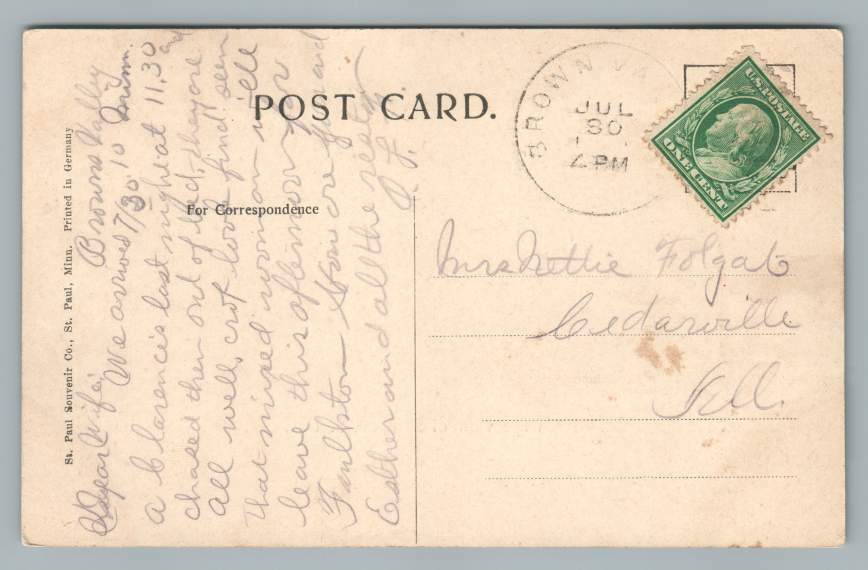 POST CARD.
For Correspondence
St. Paul Souvenir Co., St. Paul, Minn. Printed in Germany
BROWN VA
JUL
30
PM
U.S. POSTAGE
ONE CENT
Browns Valley
7/30 10 Minn.
Dear Wife,
We arrived
a Clarences last night at 11,30 and
chased them out of bed, they are
all well, crops look fine, seen
that mixed woman
leave this afternoon for
Faulkton
Esther and all the rest
Mrs Nettie Folgate
Cedarville
Ill.